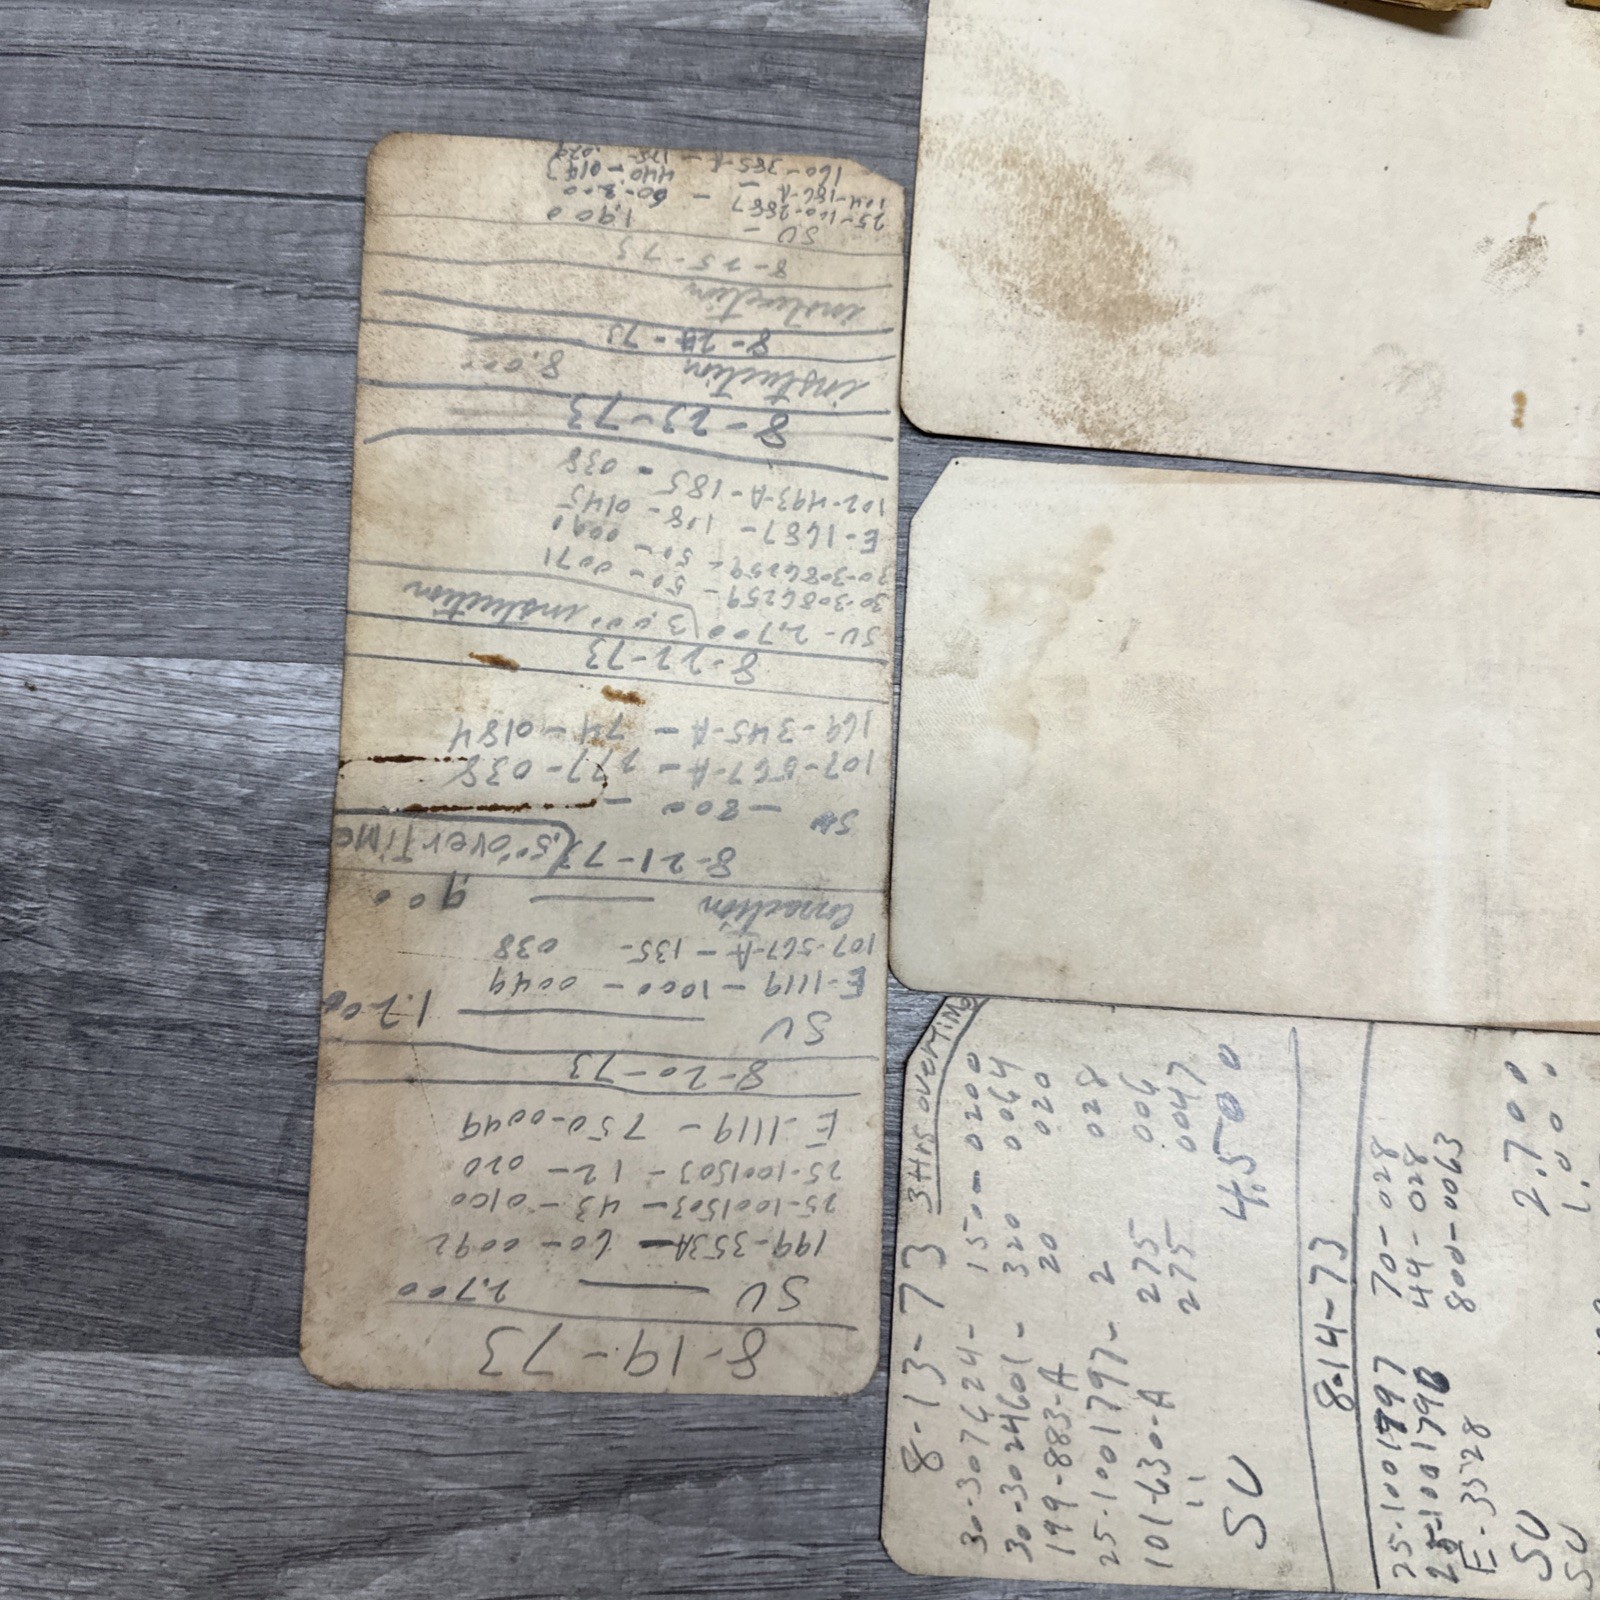 8-19-73
SU — 2,700
199-353A — 60-0092
25-1001503- 43-0100
25-1001503- 12- 020
E-1119 - 750-0049
8-20-73
SU — 1.200
E-1119 - 1000 - 0049
107-567-A - 135- 038
— 900
8-21-73 .5 OVERTIME
SU - 800 -
107-567-A - 277-038
169-345-A - 74-0184
8-22-73
SU-2,700 3.00 instuction
30-3086259- 50-0071
30-3086259- 50-0090
E-1687- 108-0145
102-493-A-185-038
8-23-73
instuction 8.000
8-24-73
instuction
8-25-73
SU - 1,900
25-100-2887 - 60-200
104-186-A - 440-0193
160-385-A - 175-.029
8-13-73 3 Hrs overTime
30-307624- 150-0200
30-3024601- 320 0064
199-883-A 20 020
25-1001797- 2 028
101-630-A 275 006
" 275 .0047
SU 4.500
8-14-73
25-1001797 70-028
25-1001796 44-028
E-3528 800-0063
SU 2.700
SU 1.00.